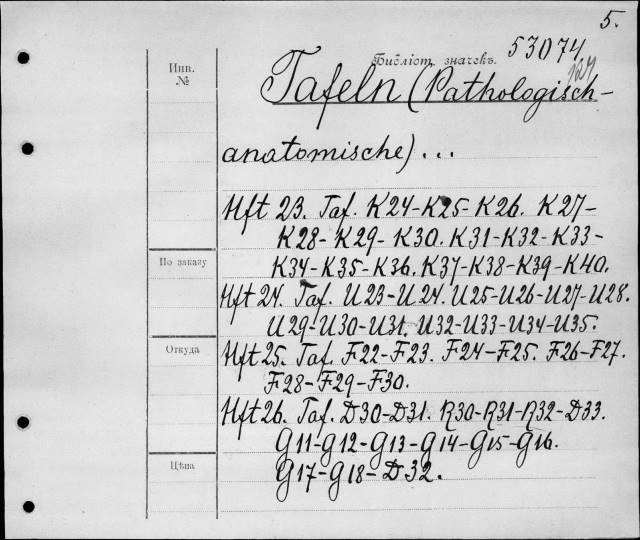 5.
Инв.
№
Библіот. значекъ.
53074
Tafeln (Pathologisch-
anatomische)...
Hft 23. Taf. K24-K25-K26. K27-
K28-K29-K30. K31-K32-K33-
K34-K35-K36. K37-K38-K39-K40.
По заказу
Hft 24. Taf. U23-U24. U25-U26-U27-U28.
U29-U30-U31. U32-U33-U34-U35.
Откуда
Hft 25. Taf. F22-F23. F24-F25. F26-F27.
F28-F29-F30.
Hft 26. Taf. D30-D31. R30-R31-R32-D33.
G11-G12-G13-G14-G15-G16.
Цѣна
G17-G18-D32.